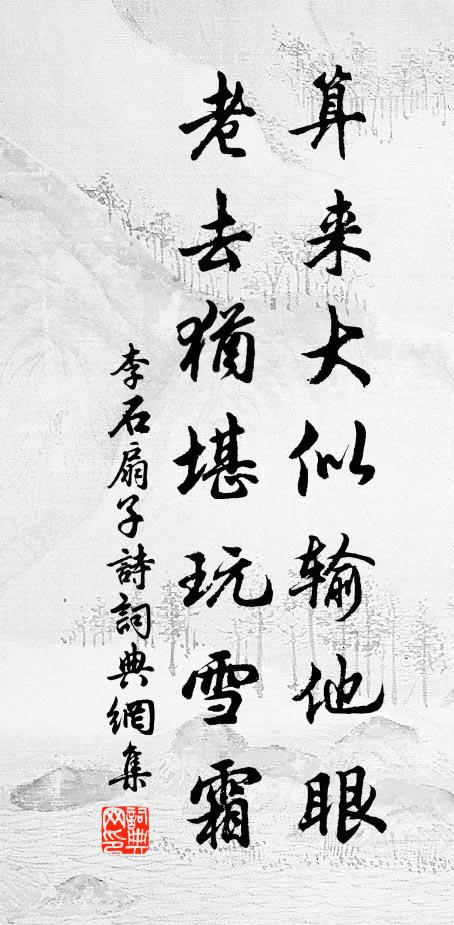 算来大似输他眼
老去犹堪玩雪霜
李石扇子詩詞典網集
詞典網印